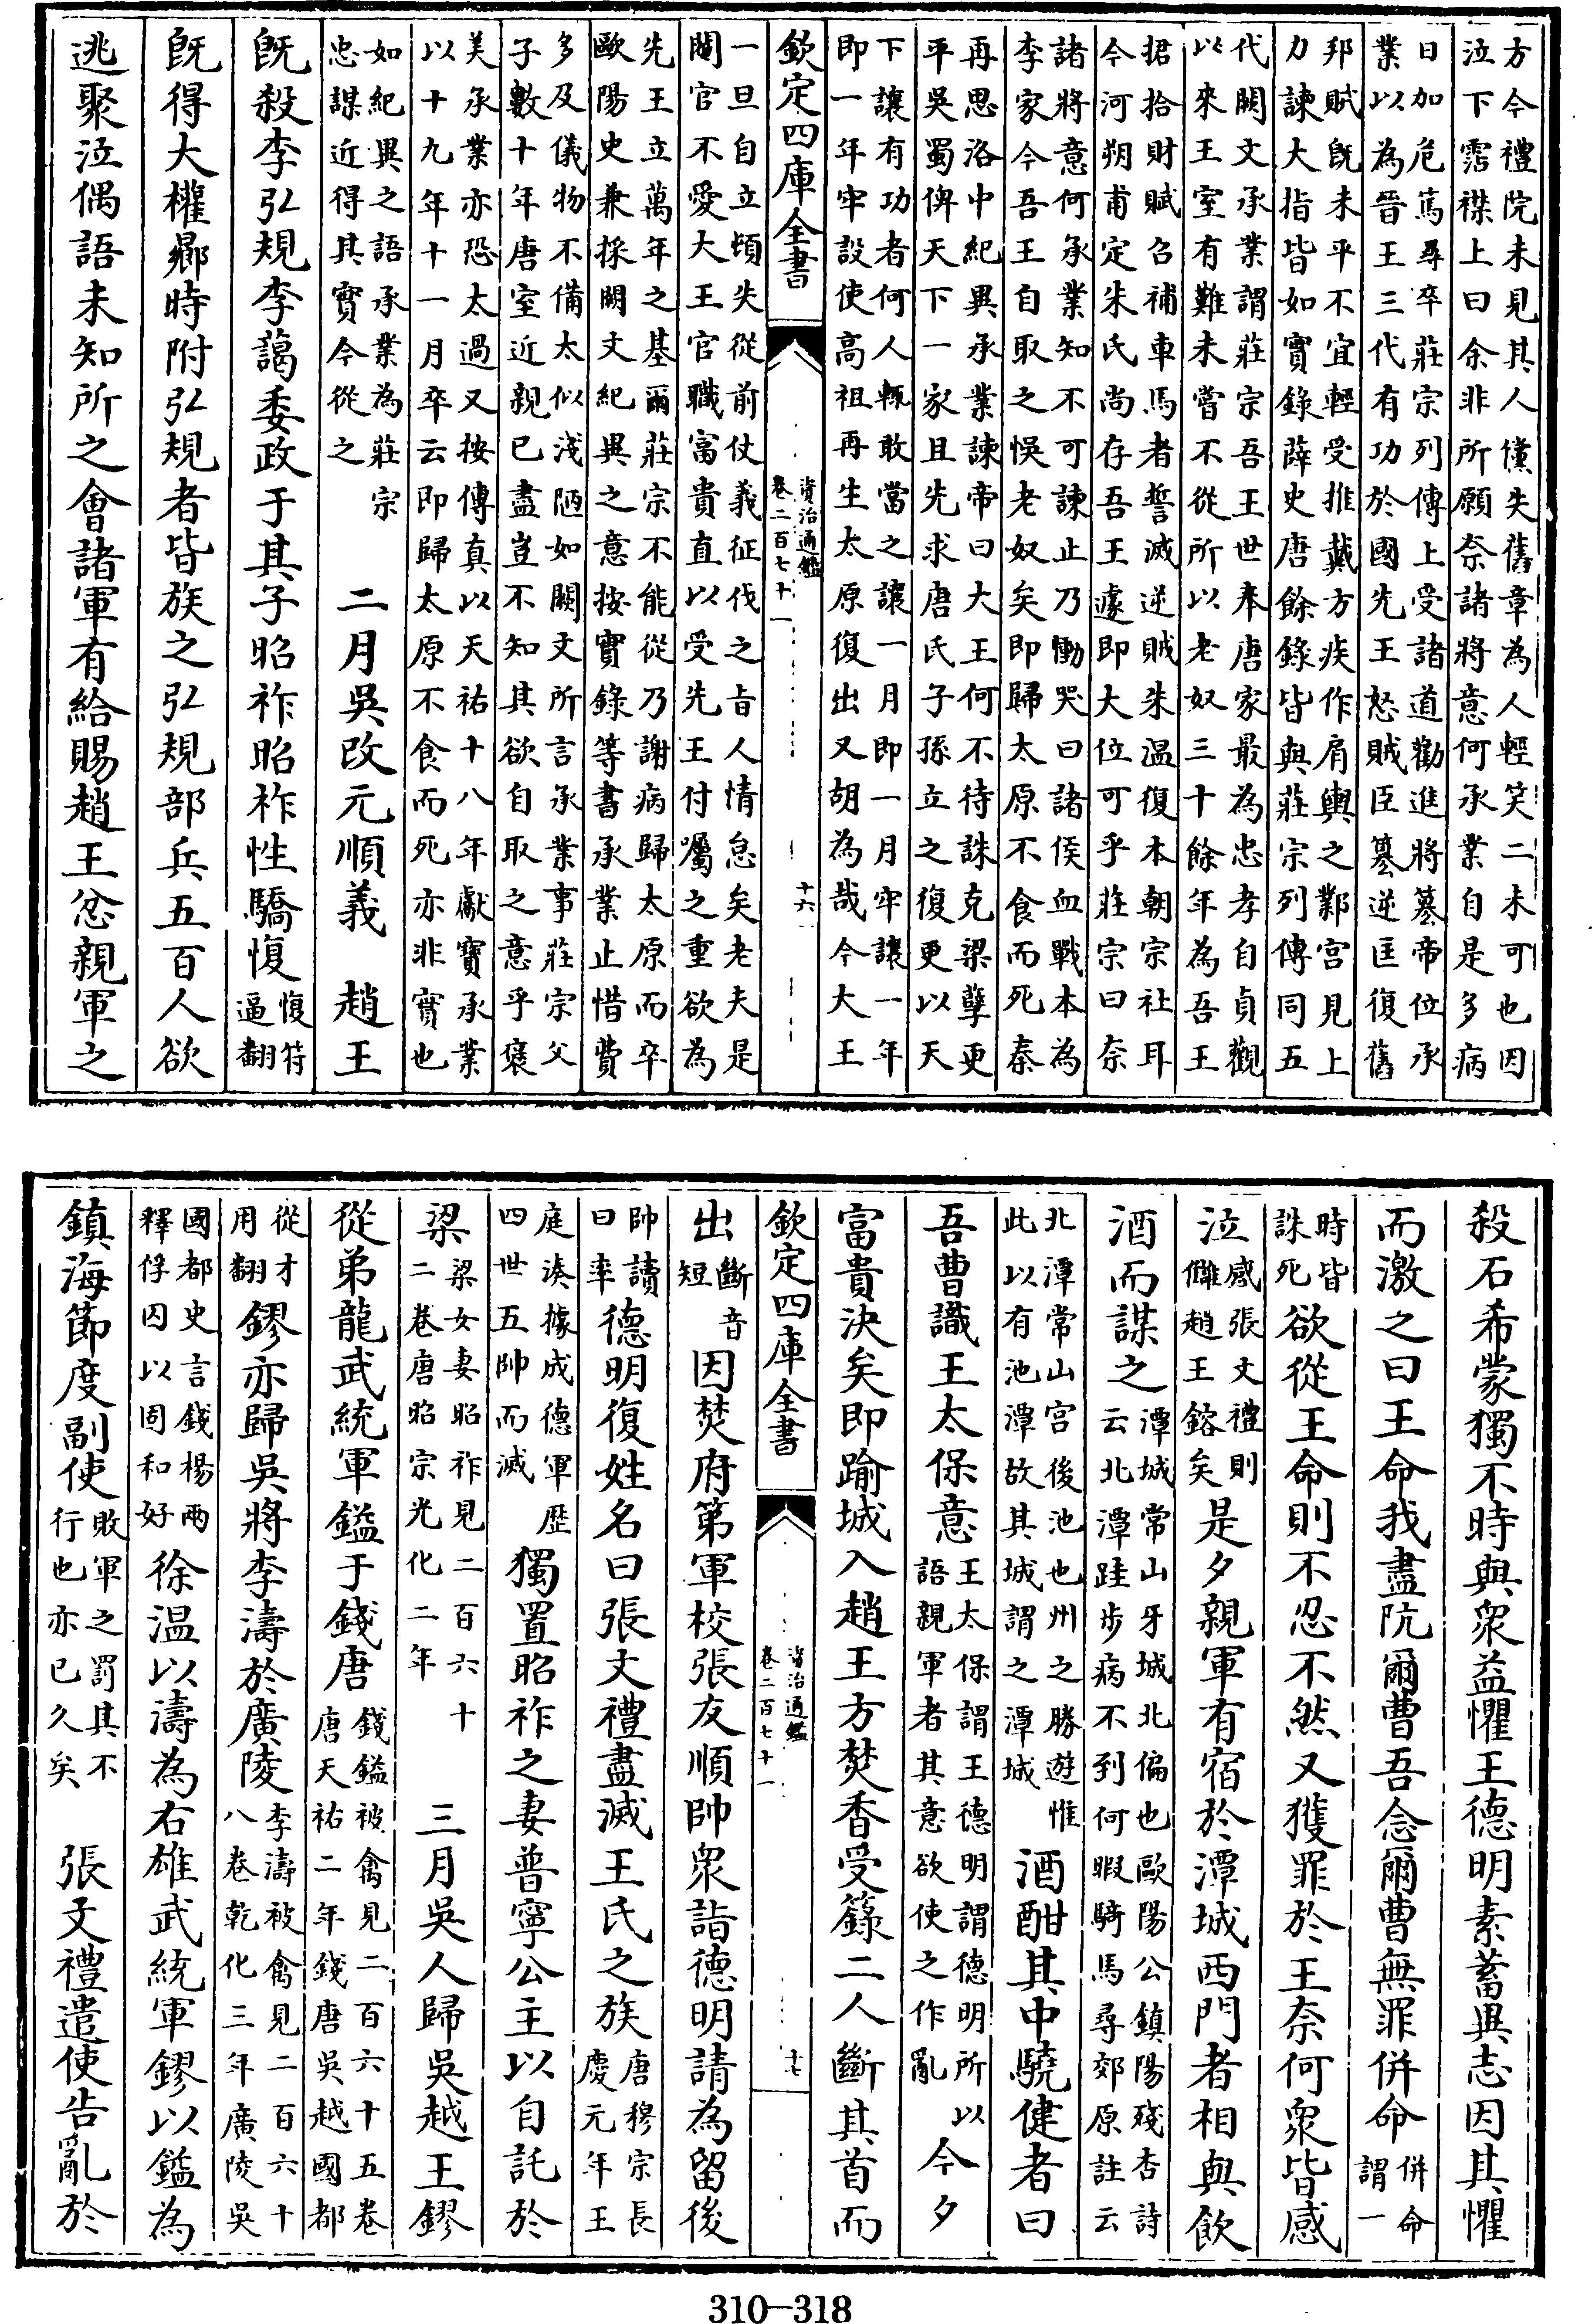 方今禮院未見其人儻失舊章為人輕笑二未可也因
泣下霑襟上曰余非所願奈諸將意何承業自是多病
日加危篤尋卒莊宗列傳上受諸道勸進將簒帝位承
業以為晉王三代有功於國先王怒賊臣簒逆匡復舊
邦賊旣未平不宜輕受推戴方疾作肩輿之鄴宫見上
力諫大指皆如實錄薛史唐餘錄皆與莊宗列傳同五
代闕文承業謂莊宗吾王世奉唐家最為忠孝自貞觀
以來王室有難未嘗不從所以老奴三十餘年為吾王
捃拾財賦召補車馬者誓滅逆賊朱温復本朝宗社耳
今河朔甫定朱氏尚存吾王遽即大位可乎莊宗曰奈
諸將意何承業知不可諫止乃慟哭曰諸侯血戰本為
李家今吾王自取之悞老奴矣即歸太原不食而死秦
再思洛中紀異承業諫帝曰大王何不待誅克梁孽更
平吳蜀俾天下一家且先求唐氏子孫立之復更以天
下讓有功者何人輒敢當之讓一月即一月牢讓一年
即一年牢設使高祖再生太原復出又胡為哉今大王
欽定四庫全書
資治通鑑
卷二百七十一
十六
一旦自立頓失從前仗義征伐之旨人情怠矣老夫是
閹官不愛大王官職富貴直以受先王付囑之重欲為
先王立萬年之基爾莊宗不能從乃謝病歸太原而卒
歐陽史兼採闕文紀異之意按實錄等書承業止惜費
多及儀物不備太似淺陋如闕文所言承業事莊宗父
子數十年唐室近親已盡豈不知其欲自取之意乎褒
美承業亦恐太過又按傳真以天祐十八年獻寶承業
以十九年十一月卒云即歸太原不食而死亦非實也
如紀異之語承業為莊宗
忠謀近得其實今從之
二月吳改元順義 趙王
旣殺李弘規李藹委政于其子昭祚昭祚性驕愎
愎符
逼翻
旣得大權鄉時附弘規者皆族之弘規部兵五百人欲
逃聚泣偶語未知所之會諸軍有給賜趙王忿親軍之
殺石希蒙獨不時與衆益懼王德明素蓄異志因其懼
而激之曰王命我盡阬爾曹吾念爾曹無罪併命
併命
謂一
時皆
誅死
欲從王命則不忍不然又獲罪於王奈何衆皆感
泣
感張文禮則
讎趙王鎔矣
是夕親軍有宿於潭城西門者相與飲
酒而謀之
潭城常山牙城北偏也歐陽公鎮陽殘杏詩
云北潭跬步病不到何暇騎馬尋郊原註云
北潭常山宮後池也州之勝遊惟
此以有池潭故其城謂之潭城
酒酣其中驍健者曰
吾曹識王太保意
王太保謂王德明謂德明所以
語親軍者其意欲使之作亂
今夕
富貴決矣即踰城入趙王方焚香受籙二人斷其首而
欽定四庫全書
資治通鑑
卷二百七十一
十七
出
斷音
短
因焚府第軍校張友順帥衆詣德明請為留後
帥讀
曰率
德明復姓名曰張文禮盡滅王氏之族
唐穆宗長
慶元年王
庭湊據成德軍歷
四世五帥而滅
獨置昭祚之妻普寧公主以自託於
梁
梁女妻昭祚見二百六十
二卷唐昭宗光化二年
三月吳人歸吳越王鏐
從弟龍武統軍鎰于錢唐
錢鎰被禽見二百六十五卷
唐天祐二年錢唐吳越國都
從才
用翻
鏐亦歸吳將李濤於廣陵
李濤被禽見二百六十
八卷乾化三年廣陵吳
國都史言錢楊兩
釋俘囚以固和好
徐温以濤為右雄武統軍鏐以鎰為
鎮海節度副使
敗軍之罰其不
行也亦已久矣
張文禮遣使告亂於
310—318